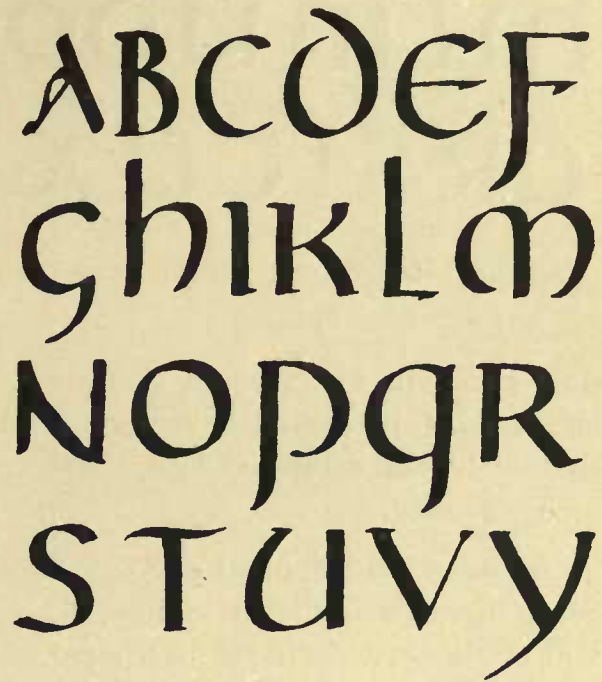 ABCDEF
GHIKLM
NOPQR
STUVY